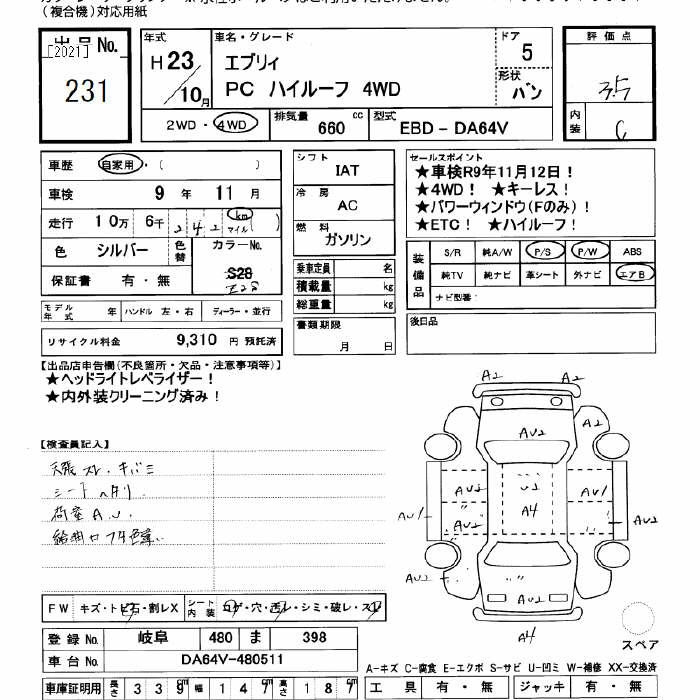 (複合機)対応用紙
出品No.
[2021]
231
年式
H23
10月
車名・グレード
エブリィ
PC ハイルーフ 4WD
ドア
5
形状
バン
2WD・4WD
排気量
660 cc
型式
EBD-DA64V
評価点
3.5
内装
C
車歴 自家用・( )
車検 9年 11月
走行 10万 6千 242 km マイル
色 シルバー
色替
カラーNo.
S28
Z2S
保証書 有・無
モデル年式 年
ハンドル 左・右
ディーラー・並行
リサイクル料金 9,310 円 預託済
シフト
IAT
冷房
AC
燃料
ガソリン
乗車定員 名
積載量 kg
総重量 kg
書類期限
月 日
セールスポイント
★車検R9年11月12日!
★4WD! ★キーレス!
★パワーウィンドウ(Fのみ)!
★ETC! ★ハイルーフ!
装備品
S/R 純A/W P/S P/W ABS
純TV 純ナビ 革シート 外ナビ エアB
ナビ型番:
後日品
【出品店申告欄(不良箇所・欠品・注意事項等)】
★ヘッドライトレベライザー!
★内外装クリーニング済み!
【検査員記入】
天張スレ・キバミ
シートヘタリ
荷室AU
給油口フタ色違い
A2 A2
A2
AU2
AU2 U2 AU1
AU1 AU2 〃 A4 〃 AU2
AU2 〃
AU2
A4
FW キズ・トビ石・割レX
シート内装 コゲ・穴・汚レ・シミ・破レ・スレ
登録No. 岐阜 480 ま 398
車台No. DA64V-480511
車庫証明用 長さ 339cm 幅 147cm 高さ 187cm
スペア
A-キズ C-腐食 E-エクボ S-サビ U-凹ミ W-補修 XX-交換済
工具 有・無 ジャッキ 有・無